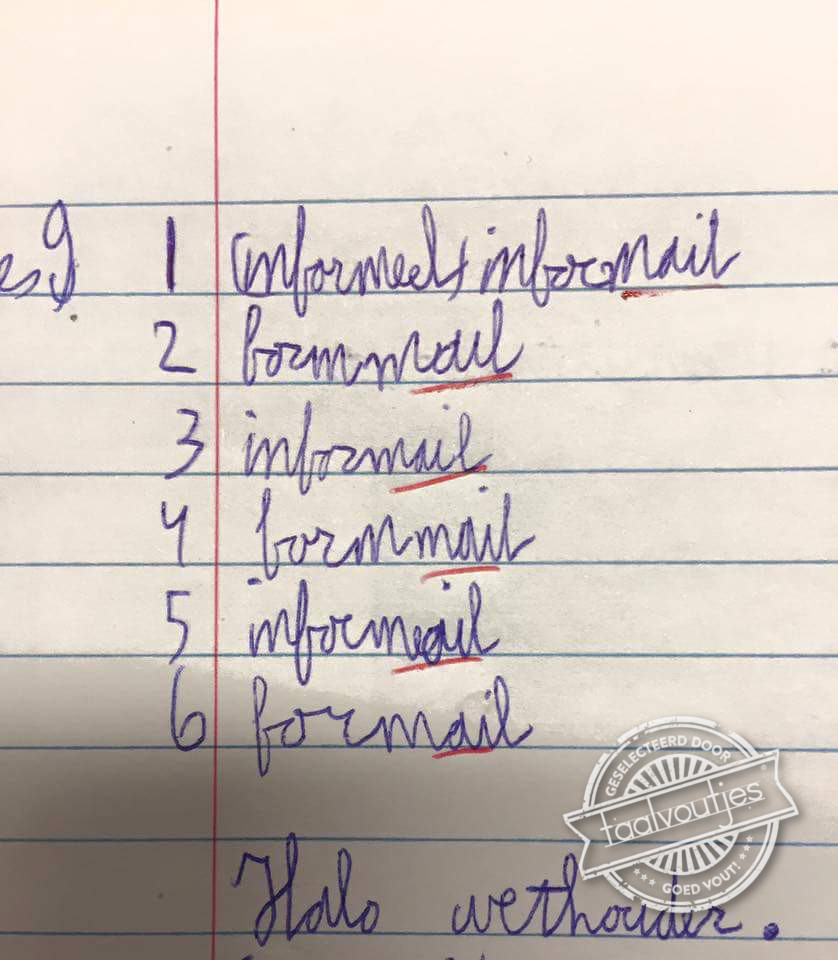 es 9 1 (informeel) informail
2 formmail
3 informail
4 formmail
5 informail
6 formail
GESELECTEERD DOOR
taalvoutjes
GOED VOUT!
Halo wethouder.